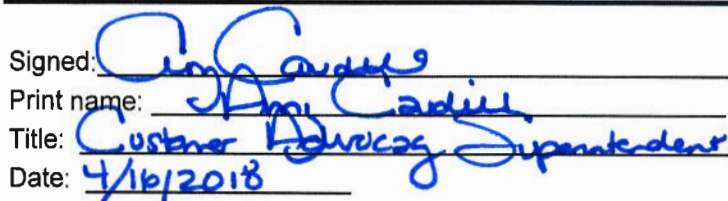 Signed:
Print name: Ami Cardill
Title: Customer Advocacy Superintendent
Date: 4/16/2018